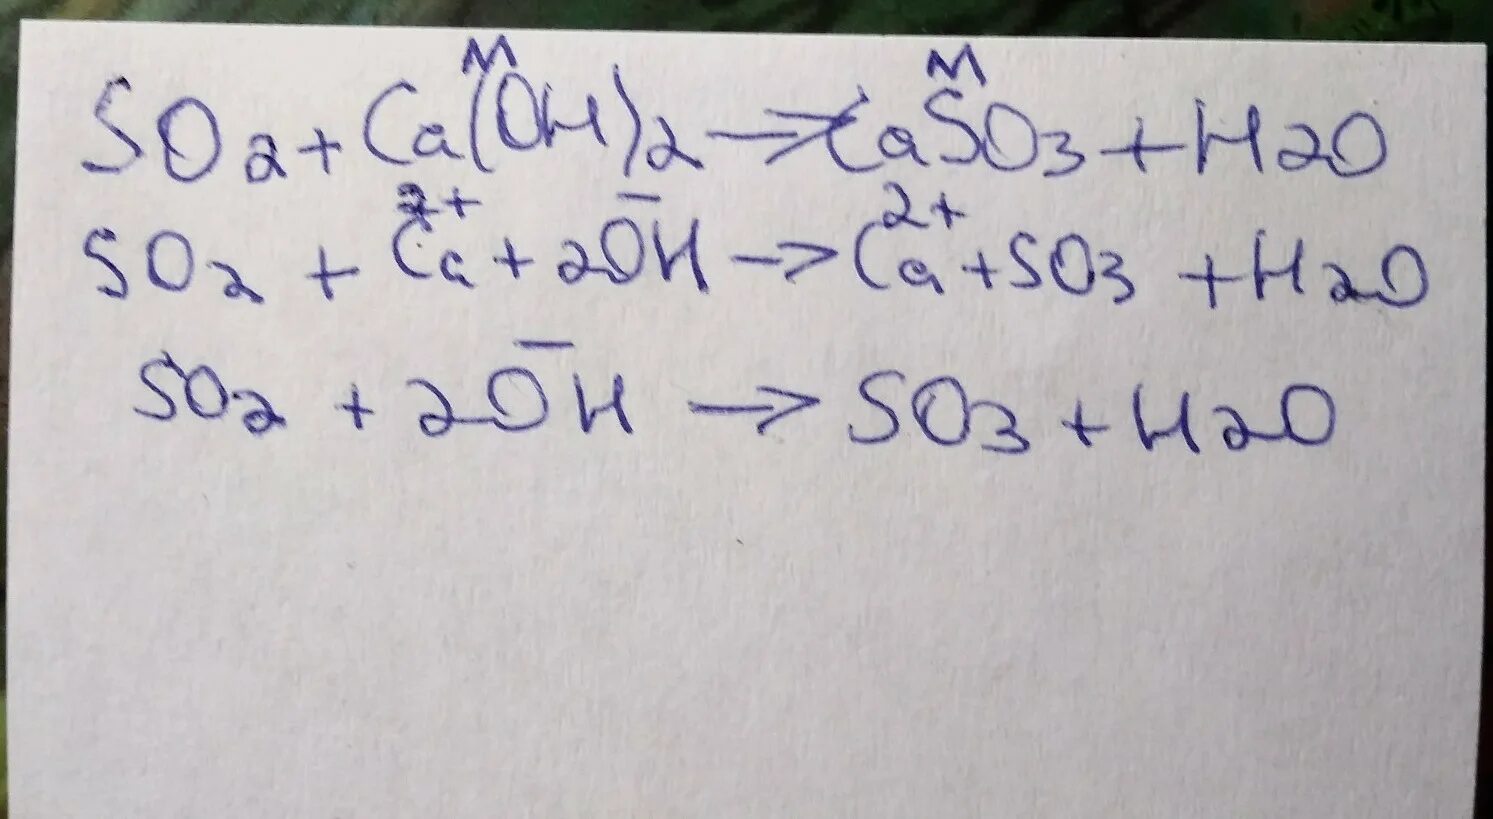 SO2 + Ca(OH)2 → CaSO3 + H2O
SO2 + Ca²⁺ + 2OH⁻ → Ca²⁺ + SO3 + H2O
SO2 + 2OH⁻ → SO3 + H2O